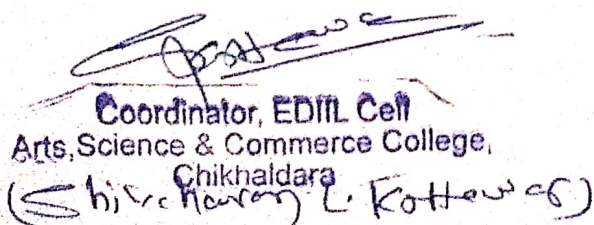 Coordinator, EDIIL Cell
Arts, Science & Commerce College,
Chikhaldara
(Shivcharan L. Kottewar)